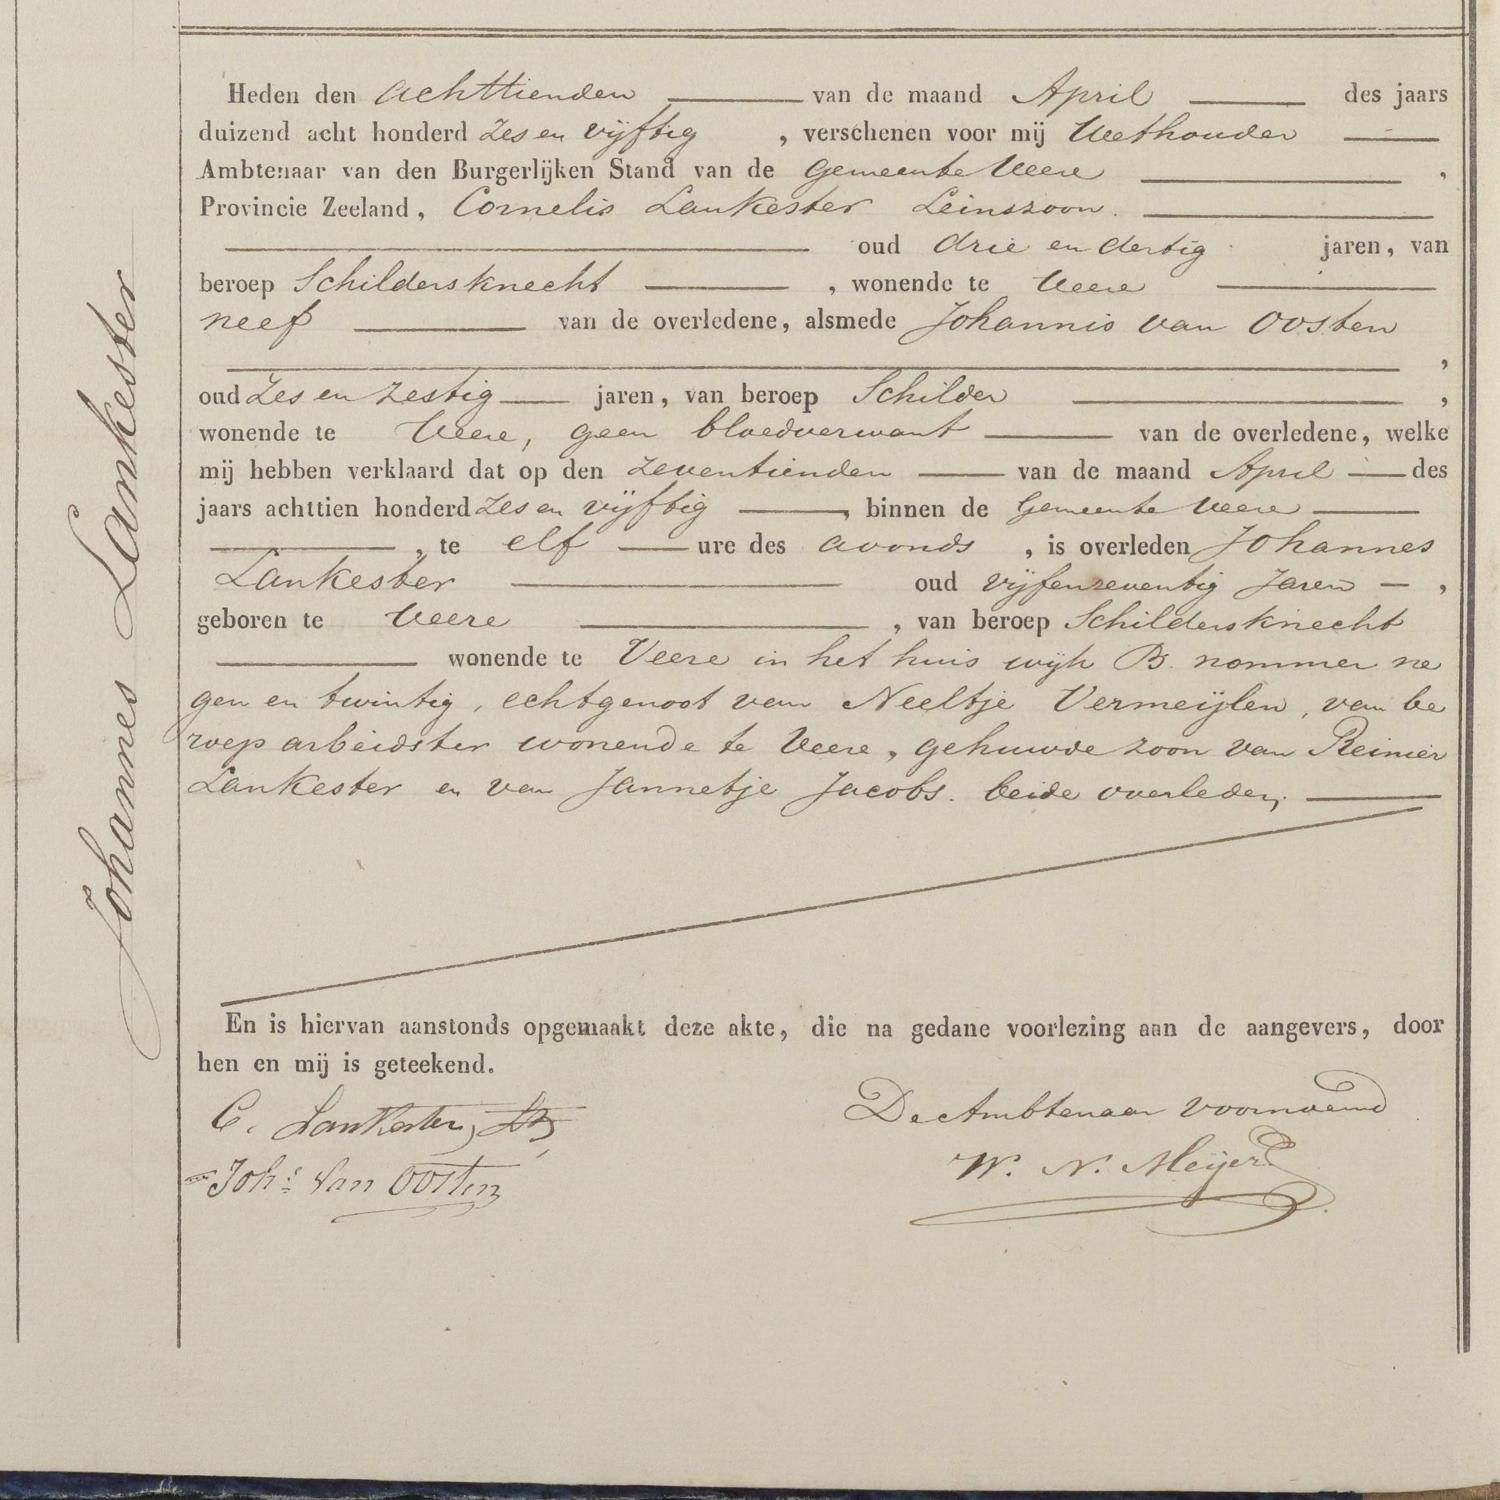 Johannes Lankester
Heden den achttienden van de maand April des jaars
duizend acht honderd zes en vijftig , verschenen voor mij Wethouder
Ambtenaar van den Burgerlijken Stand van de gemeente Veere ,
Provincie Zeeland, Cornelis Lankester Leinszoon.
oud drie en dertig jaren, van
beroep Schildersknecht , wonende te Veere
neef van de overledene, alsmede Johannis van Oosten
,
oud zes en zestig jaren, van beroep Schilder ,
wonende te Veere, geen bloedverwant van de overledene, welke
mij hebben verklaard dat op den zeventienden van de maand April des
jaars achttien honderd zes en vijftig , binnen de Gemeente Veere
, te elf ure des avonds , is overleden Johannes
Lankester oud vijfenzeventig Jaren ,
geboren te Veere , van beroep Schildersknecht
wonende te Veere in het huis wijk B. nommer ne
gen en twintig, echtgenoot van Neeltje Vermeijlen, van be
roep arbeidster wonende te Veere, gehuwde zoon van Reinier
Lankester en van Jannetje Jacobs. beide overleden,
En is hiervan aanstonds opgemaakt deze akte, die na gedane voorlezing aan de aangevers, door
hen en mij is geteekend.
C. Lankester,
De Ambtenaar voornoemd
Joh.s Van Oosten
W. N. Meijer